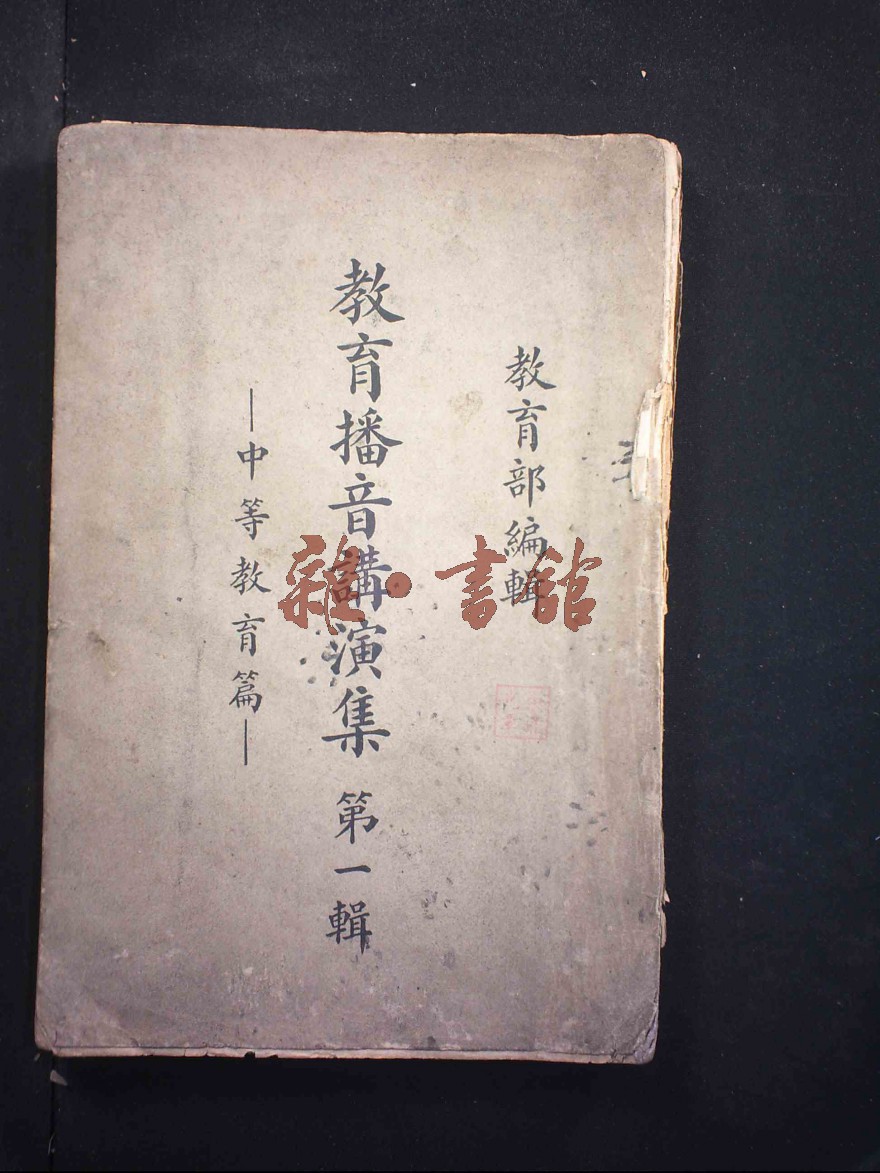 教育部編輯
教育播音講演集 第一輯
—中等教育篇—
雜·書館